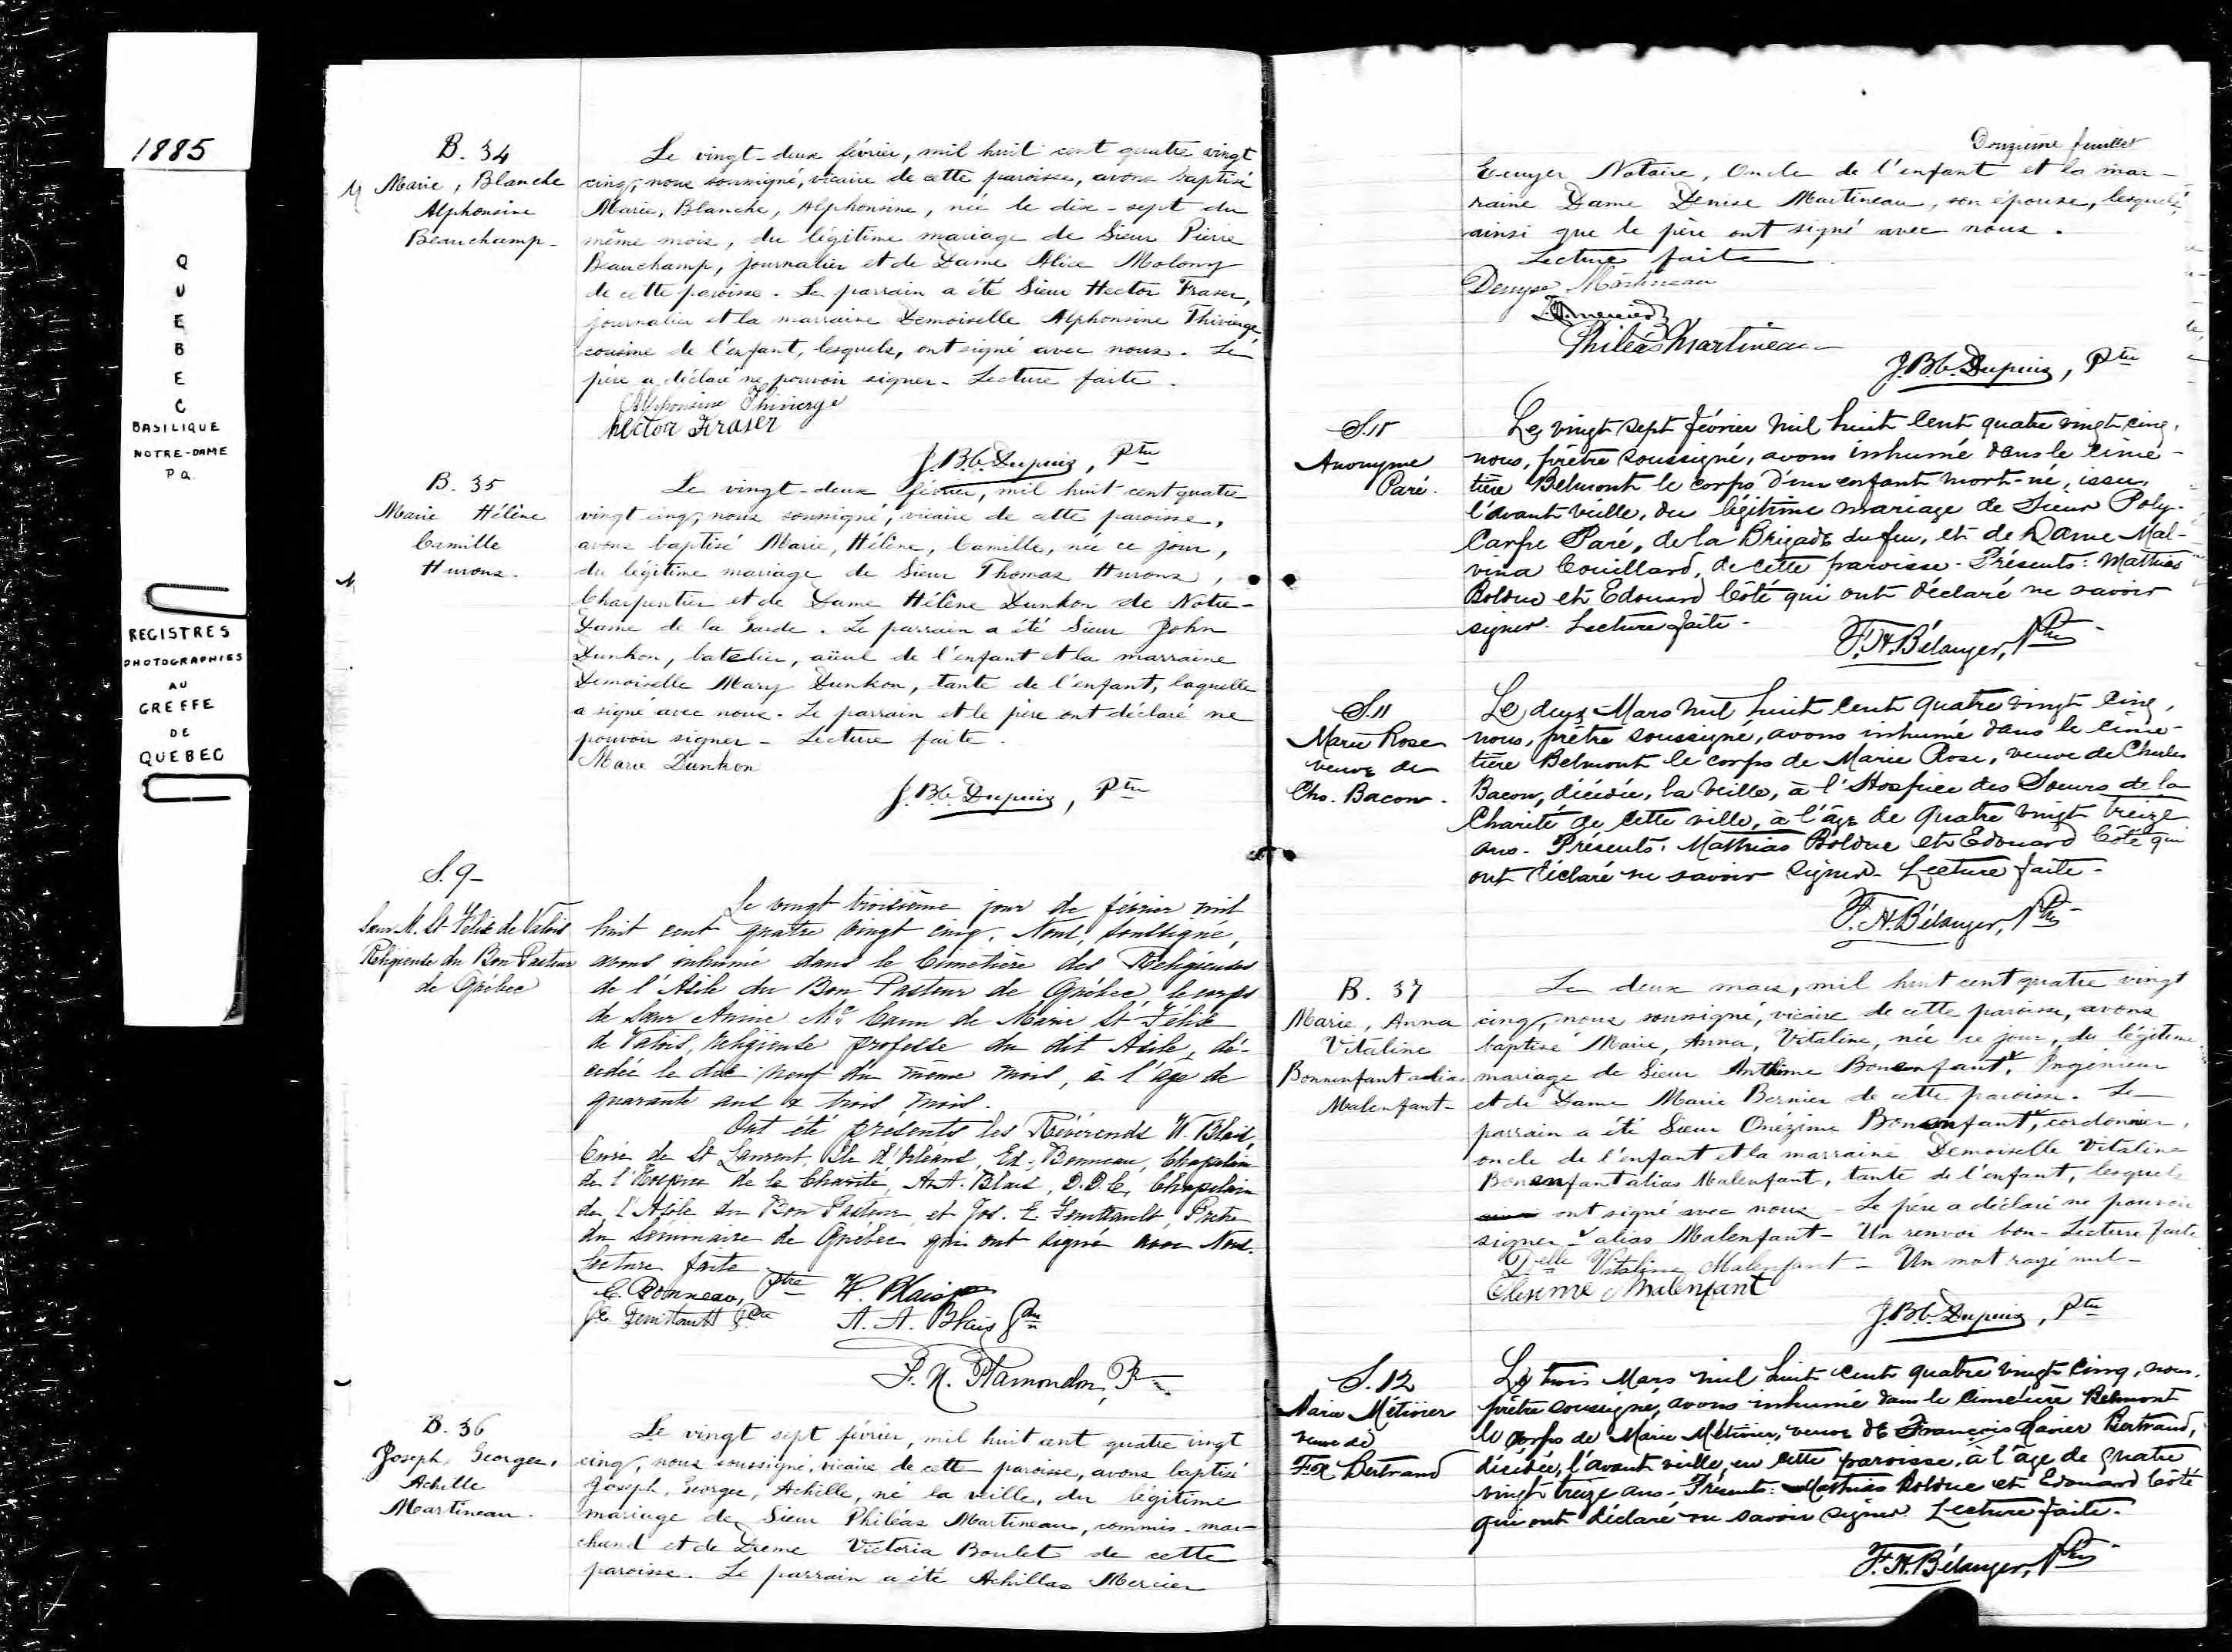 1885
QUEBEC
BASILIQUE
NOTRE-DAME
P Q.
REGISTRES
PHOTOGRAPHIES
AU
GREFFE
DE
QUEBEC
B. 34
Marie, Blanche
Alphonsine
Beauchamp-
Le vingt-deux février, mil huit cent quatre vingt
cinq, nous soussigné, vicaire de cette paroisse, avons baptisé
Marie, Blanche, Alphonsine, née le dix-sept du
même mois, du légitime mariage de Sieur Pierre
Beauchamp, journalier et de Dame Alice Molony
de cette paroisse. Le parrain a été Sieur Hector Fraser,
journalier et la marraine Demoiselle Alphonsine Thivierge
cousine de l'enfant, lesquels, ont signé avec nous. Le
père a déclaré ne pouvoir signer. Lecture faite.
Alphonsine Thivierge
Hector Fraser
J.B.C. Dupuis, Ptre
B. 35
Marie Hélène
Camille
Hurons.
Le vingt-deux février, mil huit cent quatre
vingt cinq, nous soussigné, vicaire de cette paroisse,
avons baptisé Marie, Hélène, Camille, née ce jour,
du légitime mariage de Sieur Thomas Hurons,
Charpentier et de Dame Hélène Dunkon de Notre-
Dame de la Garde. Le parrain a été Sieur John
Dunkon, batelier, aïeul de l'enfant et la marraine
Demoiselle Mary Dunkon, tante de l'enfant, laquelle
a signé avec nous. Le parrain et le père ont déclaré ne
pouvoir signer - Lecture faite.
Marie Dunkon
J.B.C. Dupuis, Ptre
S. 9-
Soeur M. St Félix de Valois
Religieuse du Bon Pasteur
de Québec
Le vingt troisième jour de février mil
huit cent quatre vingt cinq, Nous, soussigné,
avons inhumé dans le Cimetière des Religieuses
de l'Asile du Bon Pasteur de Québec, le corps
de Soeur Annie Mc Cann de Marie St Félix
de Valois, religieuse professe du dit Asile, dé-
cédée le dix neuf du même mois, à l'âge de
quarante ans & trois mois.
Ont été présents les Révérends W. Blais,
Curé de St Laurent, Ile d'Orléans, Ed. Bonneau, Chapelain
de l'Hospice de la Charité, A. A. Blais, D.D.C. Chapelain
de l'Asile du Bon Pasteur, et Jos. E. Feuiltault, Prêtre
du Séminaire de Québec qui ont signé avec Nous.
Lecture faite
E. Bonneau, Ptre W. Blais ptre
J.E. Feuiltault Ptre A. A. Blais Ptre
F. X. Plamondon, Ptre
B. 36
Joseph, Georges,
Achille
Martineau.
Le vingt sept février, mil huit cent quatre vingt
cinq, nous soussigné, vicaire de cette paroisse, avons baptisé
Joseph, Georges, Achille, né la veille, du légitime
mariage de Sieur Philéas Martineau, commis-mar-
chand et de Dame Victoria Boulet de cette
paroisse. Le parrain a été Achillas Mercier
Douzième feuillet
Ecuyer Notaire, Oncle de l'enfant et la mar-
raine Dame Denise Martineau, son épouse, lesquels,
ainsi que le père ont signé avec nous.
Lecture faite.
Denyse Martineau
Philéas Martineau
J.B.C. Dupuis, Ptre
S. 10
Anonyme
Paré.
Le vingt sept février mil huit cent quatre vingt cinq,
nous, prêtre soussigné, avons inhumé dans le cime-
tière Belmont le corps d'un enfant mort-né, issu,
l'avant veille, du légitime mariage de Sieur Poly-
carpe Paré, de la Brigade du feu, et de Dame Mal-
vina Couillard, de cette paroisse. Présents: Mathias
Bolduc et Edouard Côté qui ont déclaré ne savoir
signer. Lecture faite-
F.H. Bélanger, Ptre
S. 11
Marie Rose
veuve de
Chs. Bacon.
Le deux Mars mil huit cent quatre vingt cinq,
nous, prêtre soussigné, avons inhumé dans le cime-
tière Belmont le corps de Marie Rose, veuve de Charles
Bacon, décédée, la veille, à l'Hospice des Soeurs de la
Charité de cette ville, à l'âge de quatre vingt treize
ans. Présents: Mathias Bolduc et Edouard Côté qui
ont déclaré ne savoir signer. Lecture faite-
F. H. Bélanger, Ptre
B. 37
Marie, Anna
Vitaline
Bonnenfant alias
Malenfant-
Le deux mars, mil huit cent quatre vingt
cinq, nous soussigné, vicaire de cette paroisse, avons
baptisé Marie, Anna, Vitaline, née ce jour, du légitime
mariage de Sieur Anthime Bonenfant, Ingénieur
et de Dame Marie Bernier de cette paroisse. Le
parrain a été Sieur Onézime Bonenfant, cordonnier,
oncle de l'enfant et la marraine Demoiselle Vitaline
Bonenfant alias Malenfant, tante de l'enfant, lesquels
ont signé avec nous - Le père a déclaré ne pouvoir
signer - alias Malenfant - Un renvoi bon - Lecture faite
Delle Vitaline Malenfant - Un mot rayé nul -
Malenfant
J.B.C. Dupuis, Ptre
S. 12
Marie Métivier
veuve de
F.X Bertrand
Le trois Mars mil huit cent quatre vingt cinq, nous,
prêtre soussigné, avons inhumé dans le cimetière Belmont
le corps de Marie Métivier, veuve de François Xavier Bertrand,
décédée, l'avant veille, en cette paroisse, à l'âge de quatre
vingt treize ans. Présents: Mathias Bolduc et Edouard Côté
qui ont déclaré ne savoir signer. Lecture faite.
F. H. Bélanger, Ptre